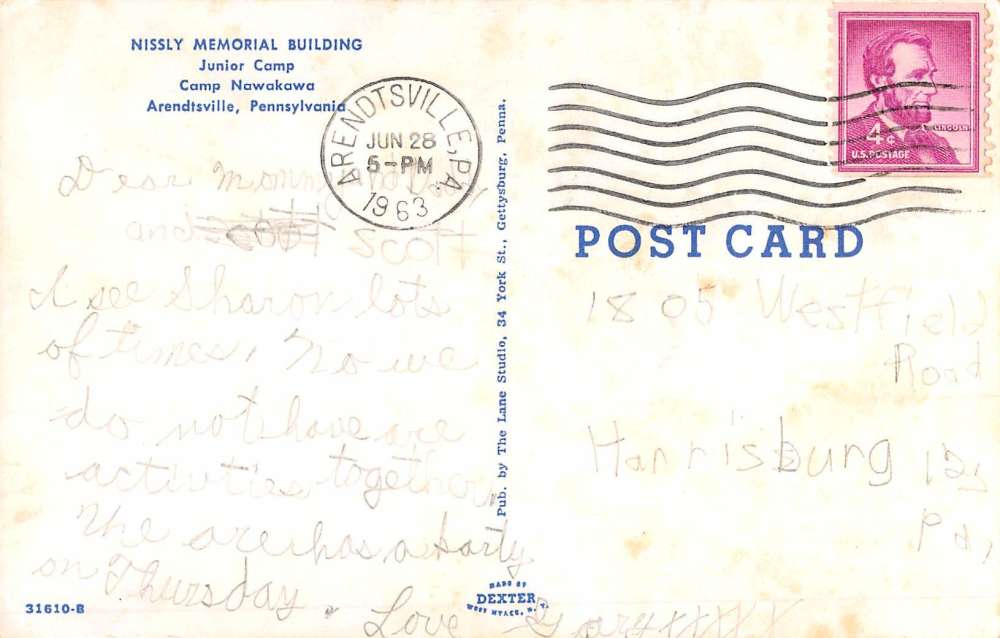 NISSLY MEMORIAL BUILDING
Junior Camp
Camp Nawakawa
Arendtsville, Pennsylvania
ARENDTSVILLE, PA.
JUN 28
5-PM
1963
LINCOLN
4¢
U.S. POSTAGE
POST CARD
Dear Mommy
and Scott
I see Sharon lots
of times. No we
do not have are
activties together
the are has a party
on Thursday.
Love Gary XXXX
1805 Westfield
Road
Harrisburg
Pa,
Pub. by The Lane Studio, 34 York St., Gettysburg, Penna.
31610-B
MADE BY
DEXTER
WEST NYACK, N. Y.